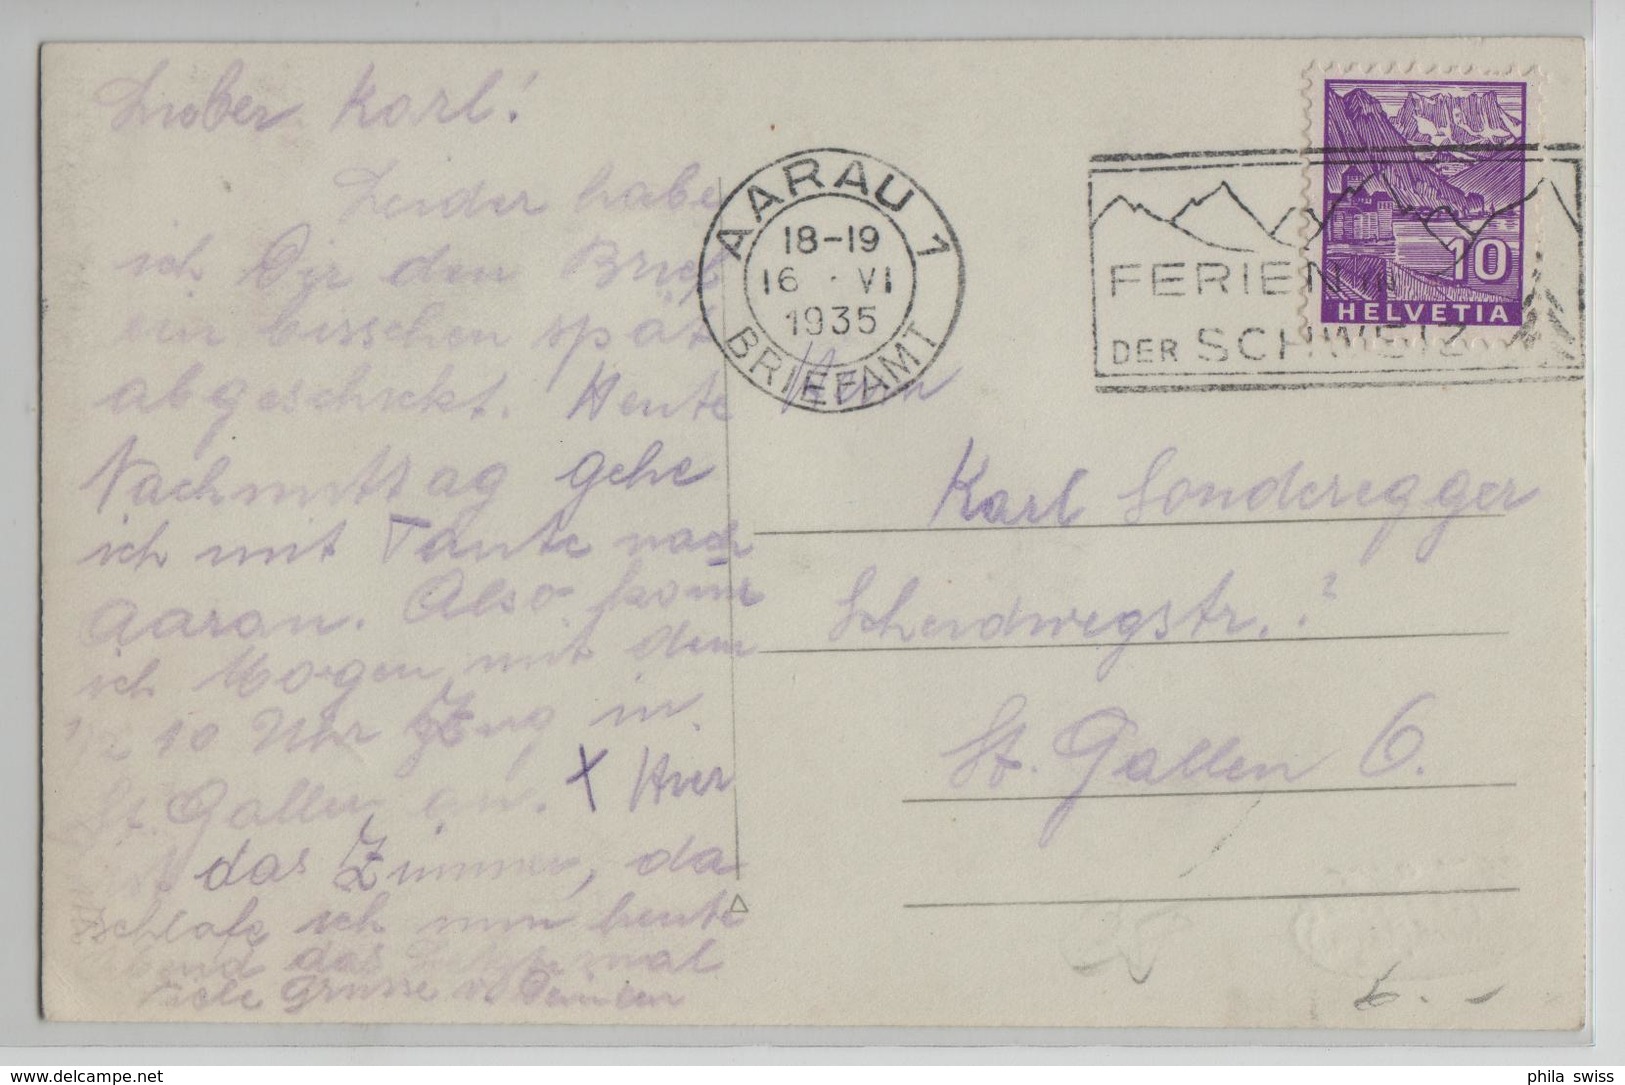 Lieber Karl!
Leider habe
ich Dir den Brief
ein bisschen spät
abgeschickt. Heute
Nachmittag gehe
ich mit Tante nach
Aarau. Also komme
ich Morgen mit dem
1/2 10 Uhr Zug in
St. Gallen an. x Hier
das Zimmer, da
schlafe ich nun heute
Abend das letztemal
viele Grüsse v.
AARAU 1
18-19
16 · VI
1935
BRIEFAMT
FERIEN IN
DER SCHWEIZ
10
HELVETIA
Herrn
Karl Sonderegger
Scheidwegstr. ?
St. Gallen 6.
6.-
phila swiss